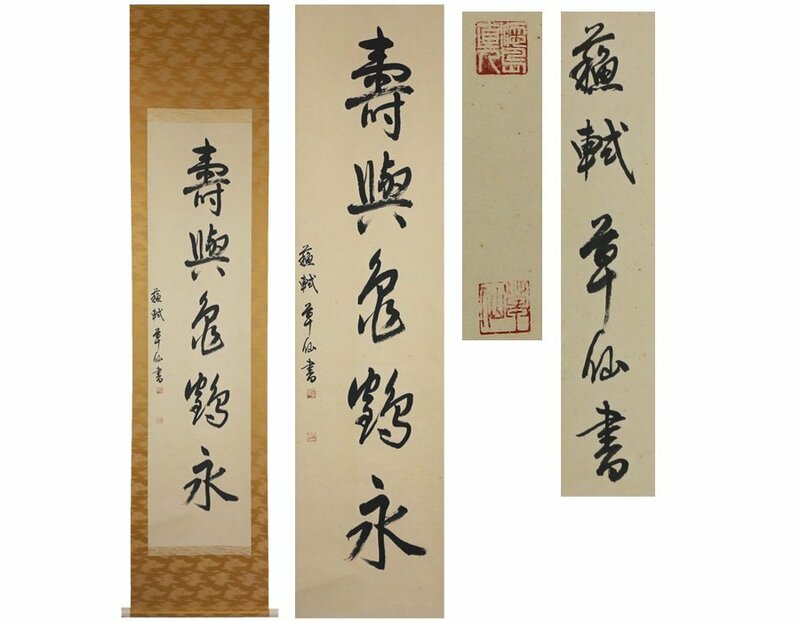 壽與龜鶴永
蘇軾 草仙書
壽與龜鶴永
蘇軾 草仙書
草仙
蘇軾草仙書